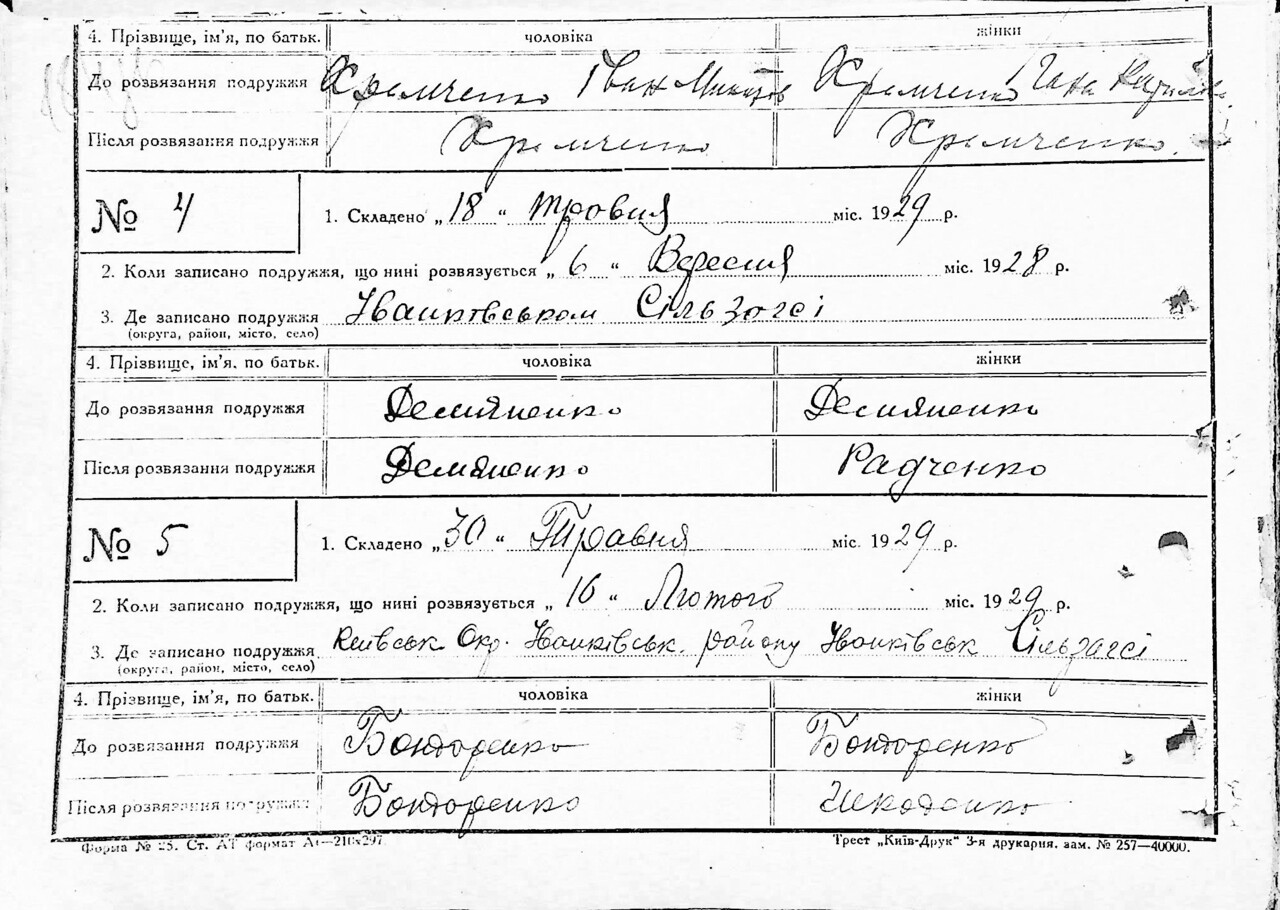 4. Прізвище, ім'я, по батьк. чоловіка жінки
До розвязання подружжя Хремченко Іван Хремченко
Після розвязання подружжя Хремченко Хремченко
№ 4 1. Складено „18“ тровня міс. 1929 р.
2. Коли записано подружжя, що нині розвязується „6“ Вересня міс. 1928 р.
3. Де записано подружжя Іванковськом Сільзагсі
(округа, район, місто, село)
4. Прізвище, ім'я, по батьк. чоловіка жінки
До розвязання подружжя Демяненко Демяненко
Після розвязання подружжя Демяненко Радченко
№ 5 1. Складено „30“ Травня міс. 1929 р.
2. Коли записано подружжя, що нині розвязується „16“ Лютого міс. 1929 р.
3. Де записано подружжя Київськ Окр. Іванківськ. району Іванківськ Сільзагсі
(округа, район, місто, село)
4. Прізвище, ім'я, по батьк. чоловіка жінки
До розвязання подружжя Бондоренко Бондоренко
Після розвязання подружжя Бондоренко
Форма № 25. Ст. А1 формат А4—210х297. Трест „Київ-Друк“ 3-я друкарня, зам. № 257—40000.